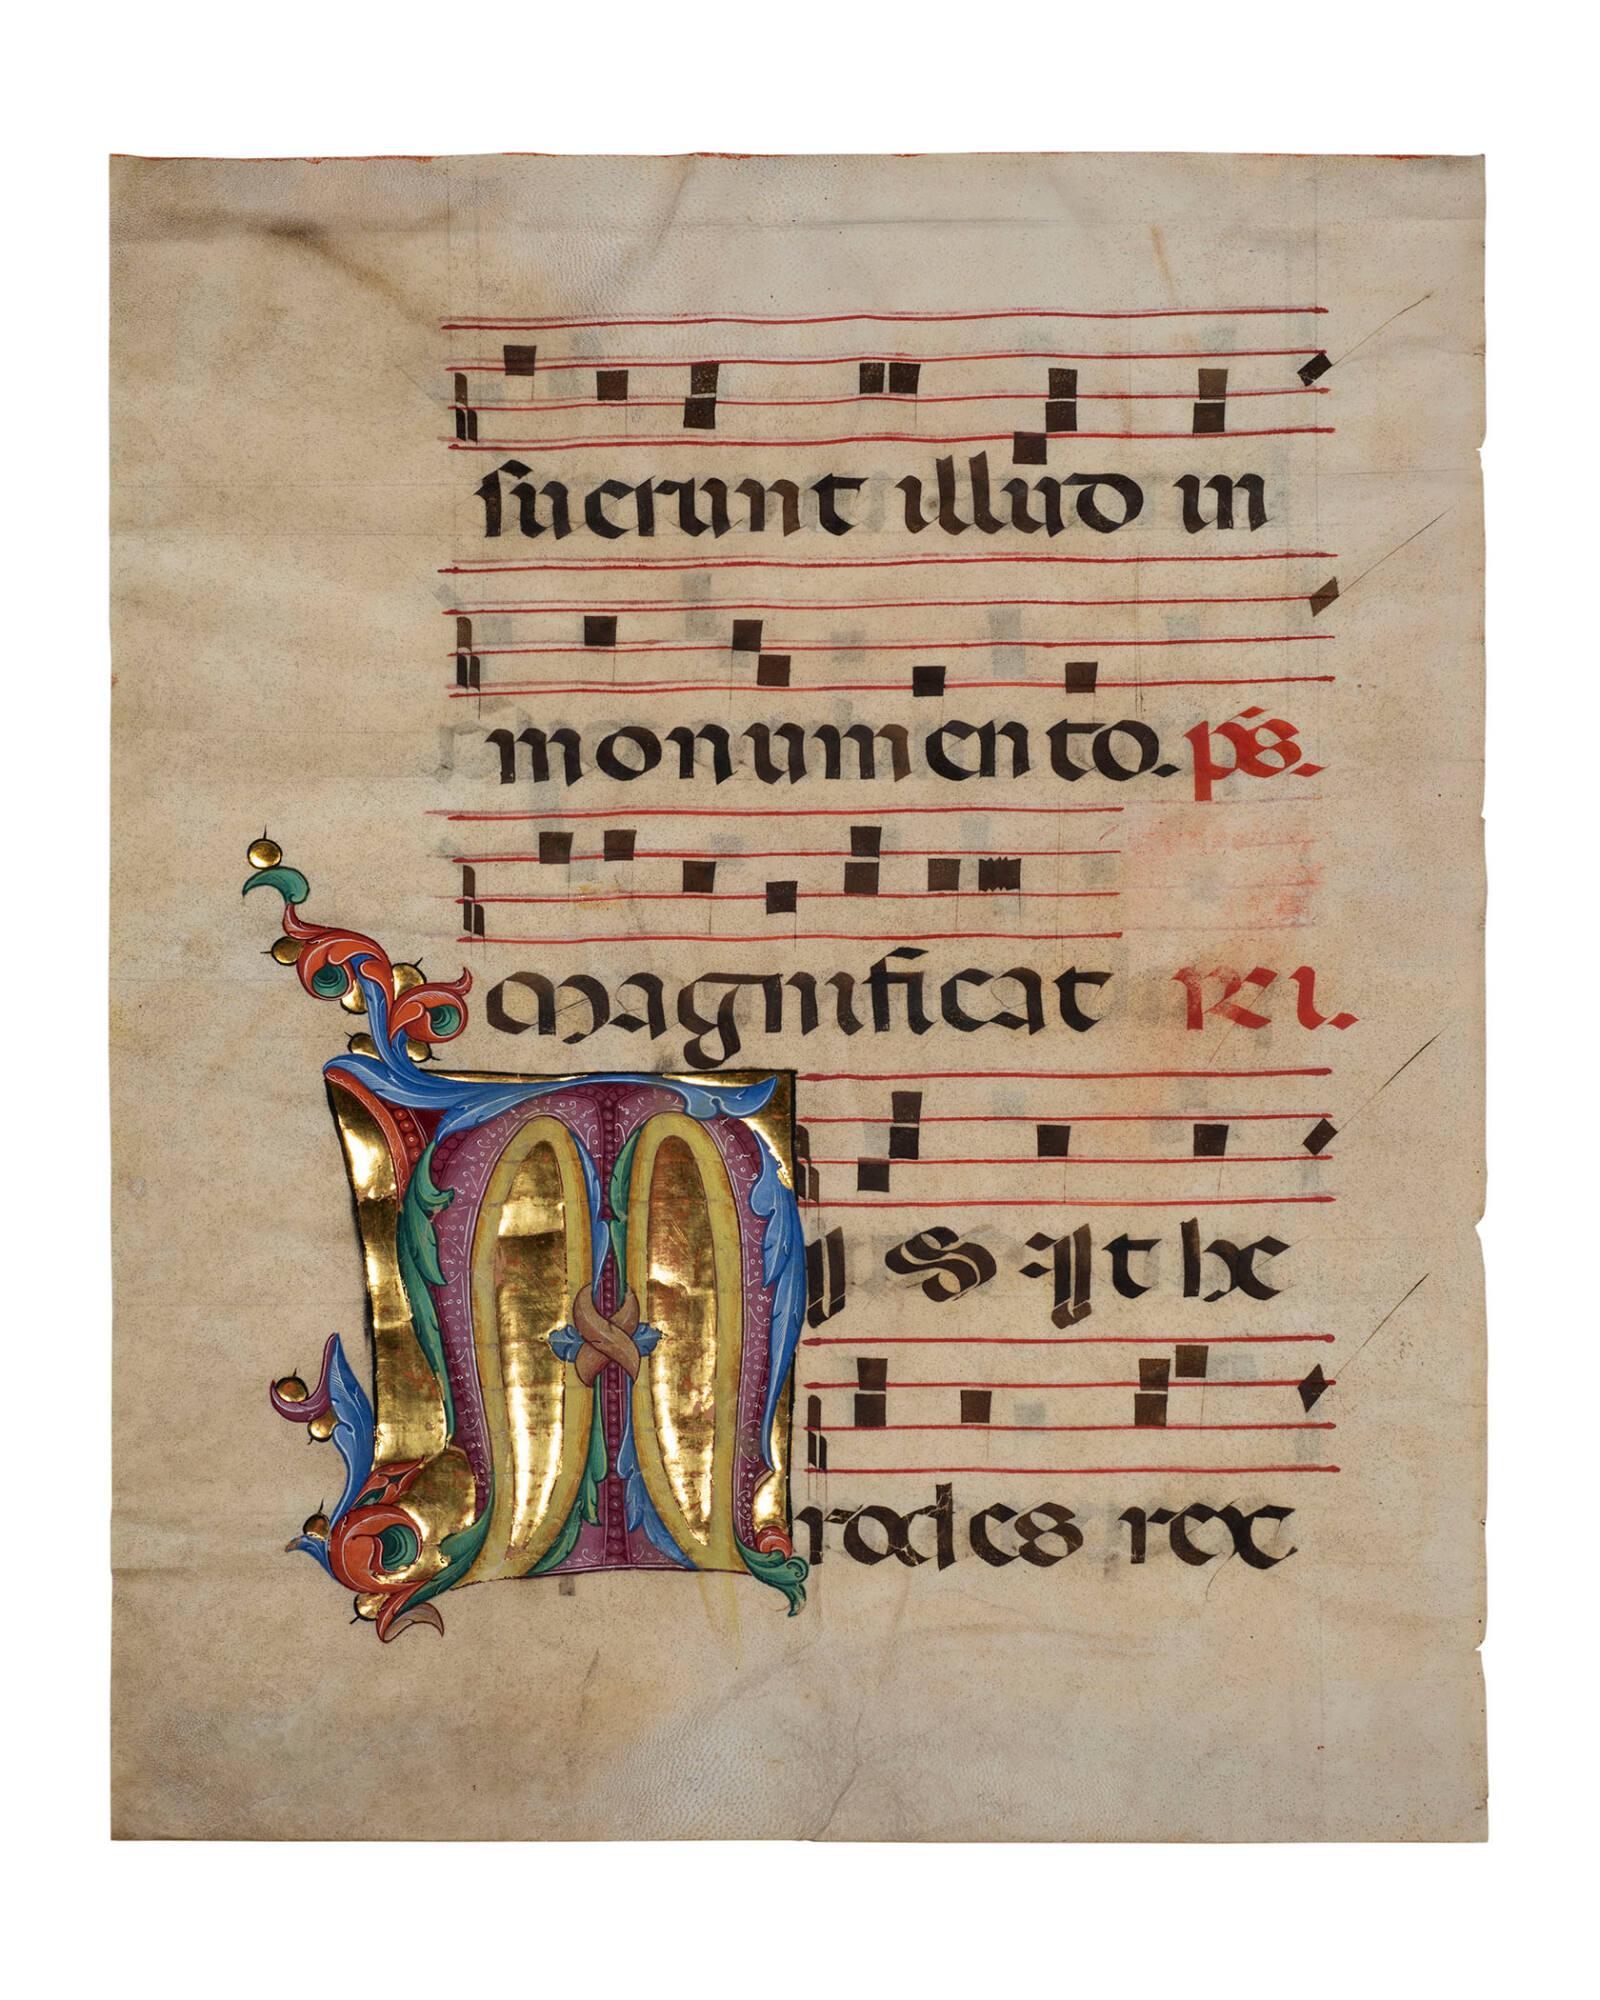 suerunt illud in
monumento. ps.
Magnificat rei.
MIS·It he
rodes rex